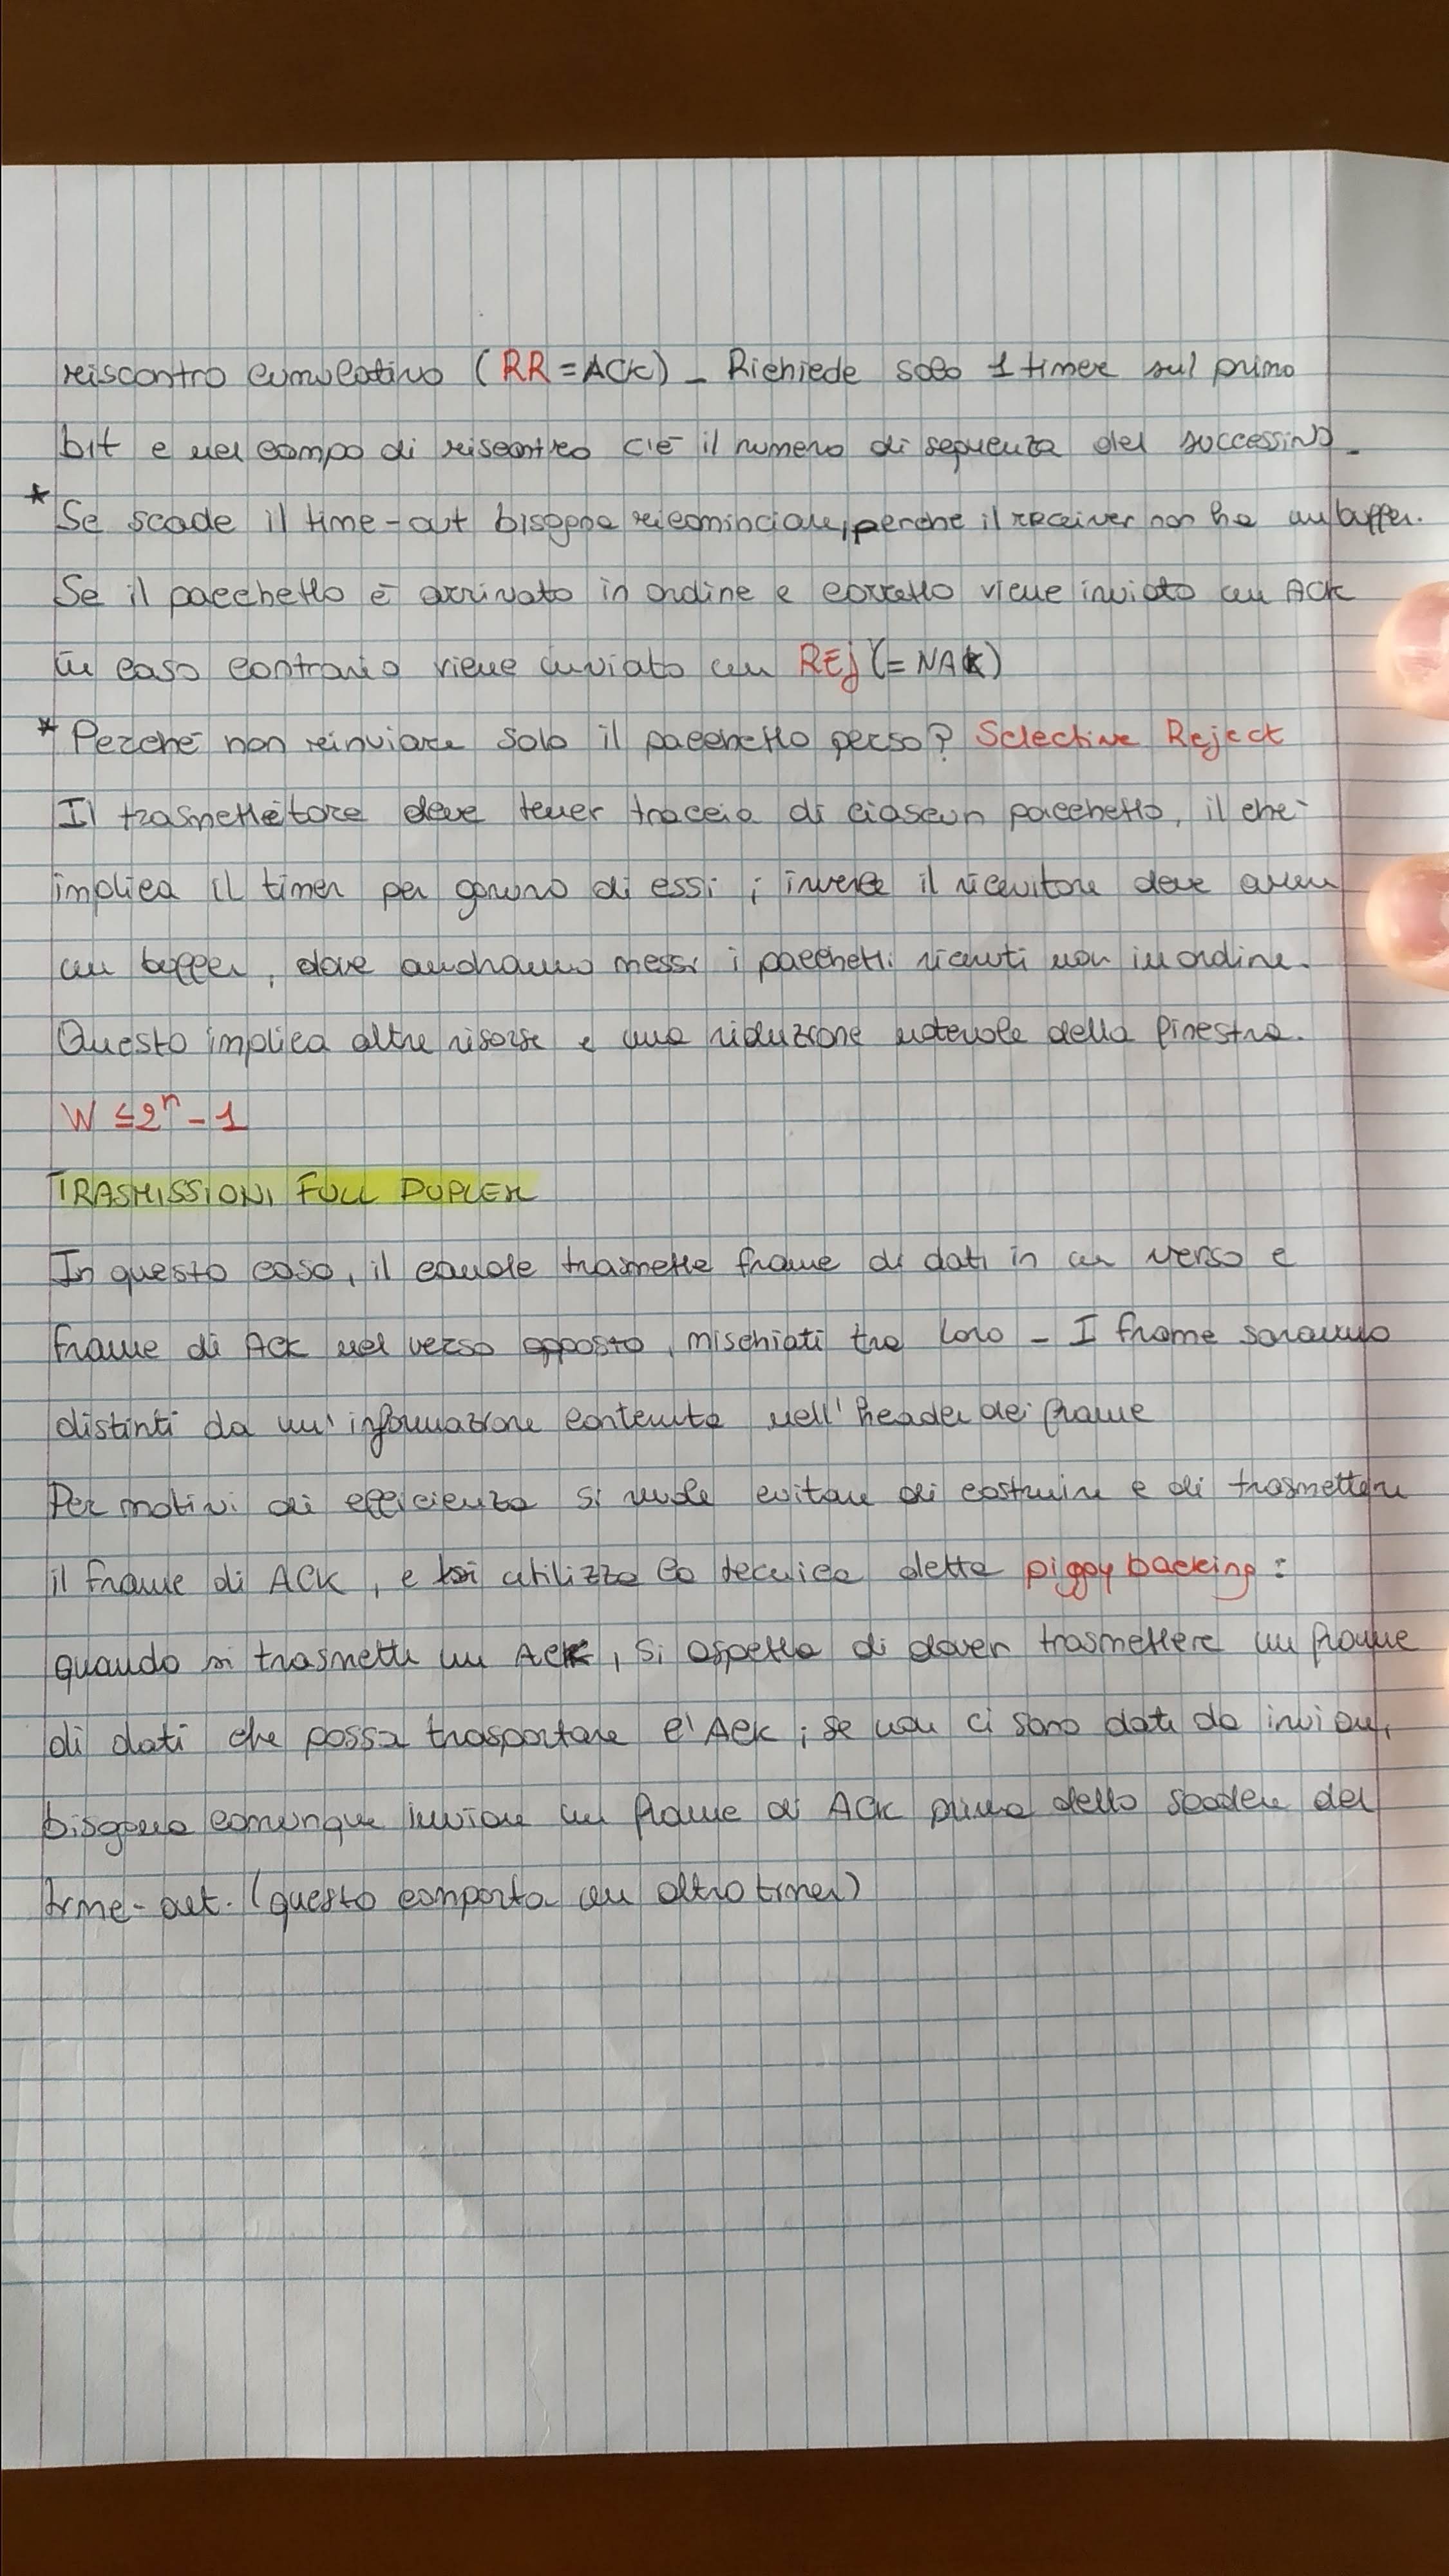 riscontro cumulativo (RR = ACK) _ Richiede solo 1 timer sul primo
bit e nel campo di riscontro c'è il numero di sequenza del successivo.
* Se scade il time-out bisogna ricominciare, perche il receiver non ha un buffer.
Se il pacchetto è arrivato in ordine e corretto viene inviato un ACK
in caso contrario viene inviato un REJ (= NAK)
* Perché non reinviare solo il pacchetto perso? Selective Reject
Il trasmettitore deve tener traccia di ciascun pacchetto, il che
implica il timer per ognuno di essi; invece il ricevitore deve avere
un buffer, dove andranno messi i pacchetti ricevuti non in ordine.
Questo implica altre risorse e una riduzione notevole della finestra.
W ≤ 2ⁿ - 1
TRASMISSIONI FULL DUPLEX
In questo caso, il canale trasmette frame di dati in un verso e
frame di ACK nel verso opposto, mischiati tra loro _ I frame saranno
distinti da un'informazione contenuta nell'header dei frame
Per motivi di efficienza si vuole evitare di costruire e di trasmettere
il frame di ACK, e si utilizza la tecnica detta piggybacking:
quando si trasmette un ACK, si aspetta di dover trasmettere un frame
di dati che possa trasportare l'ACK; se non ci sono dati da inviare,
bisogna comunque inviare un frame di ACK prima dello scadere del
time-out. (questo comporta un altro timer)